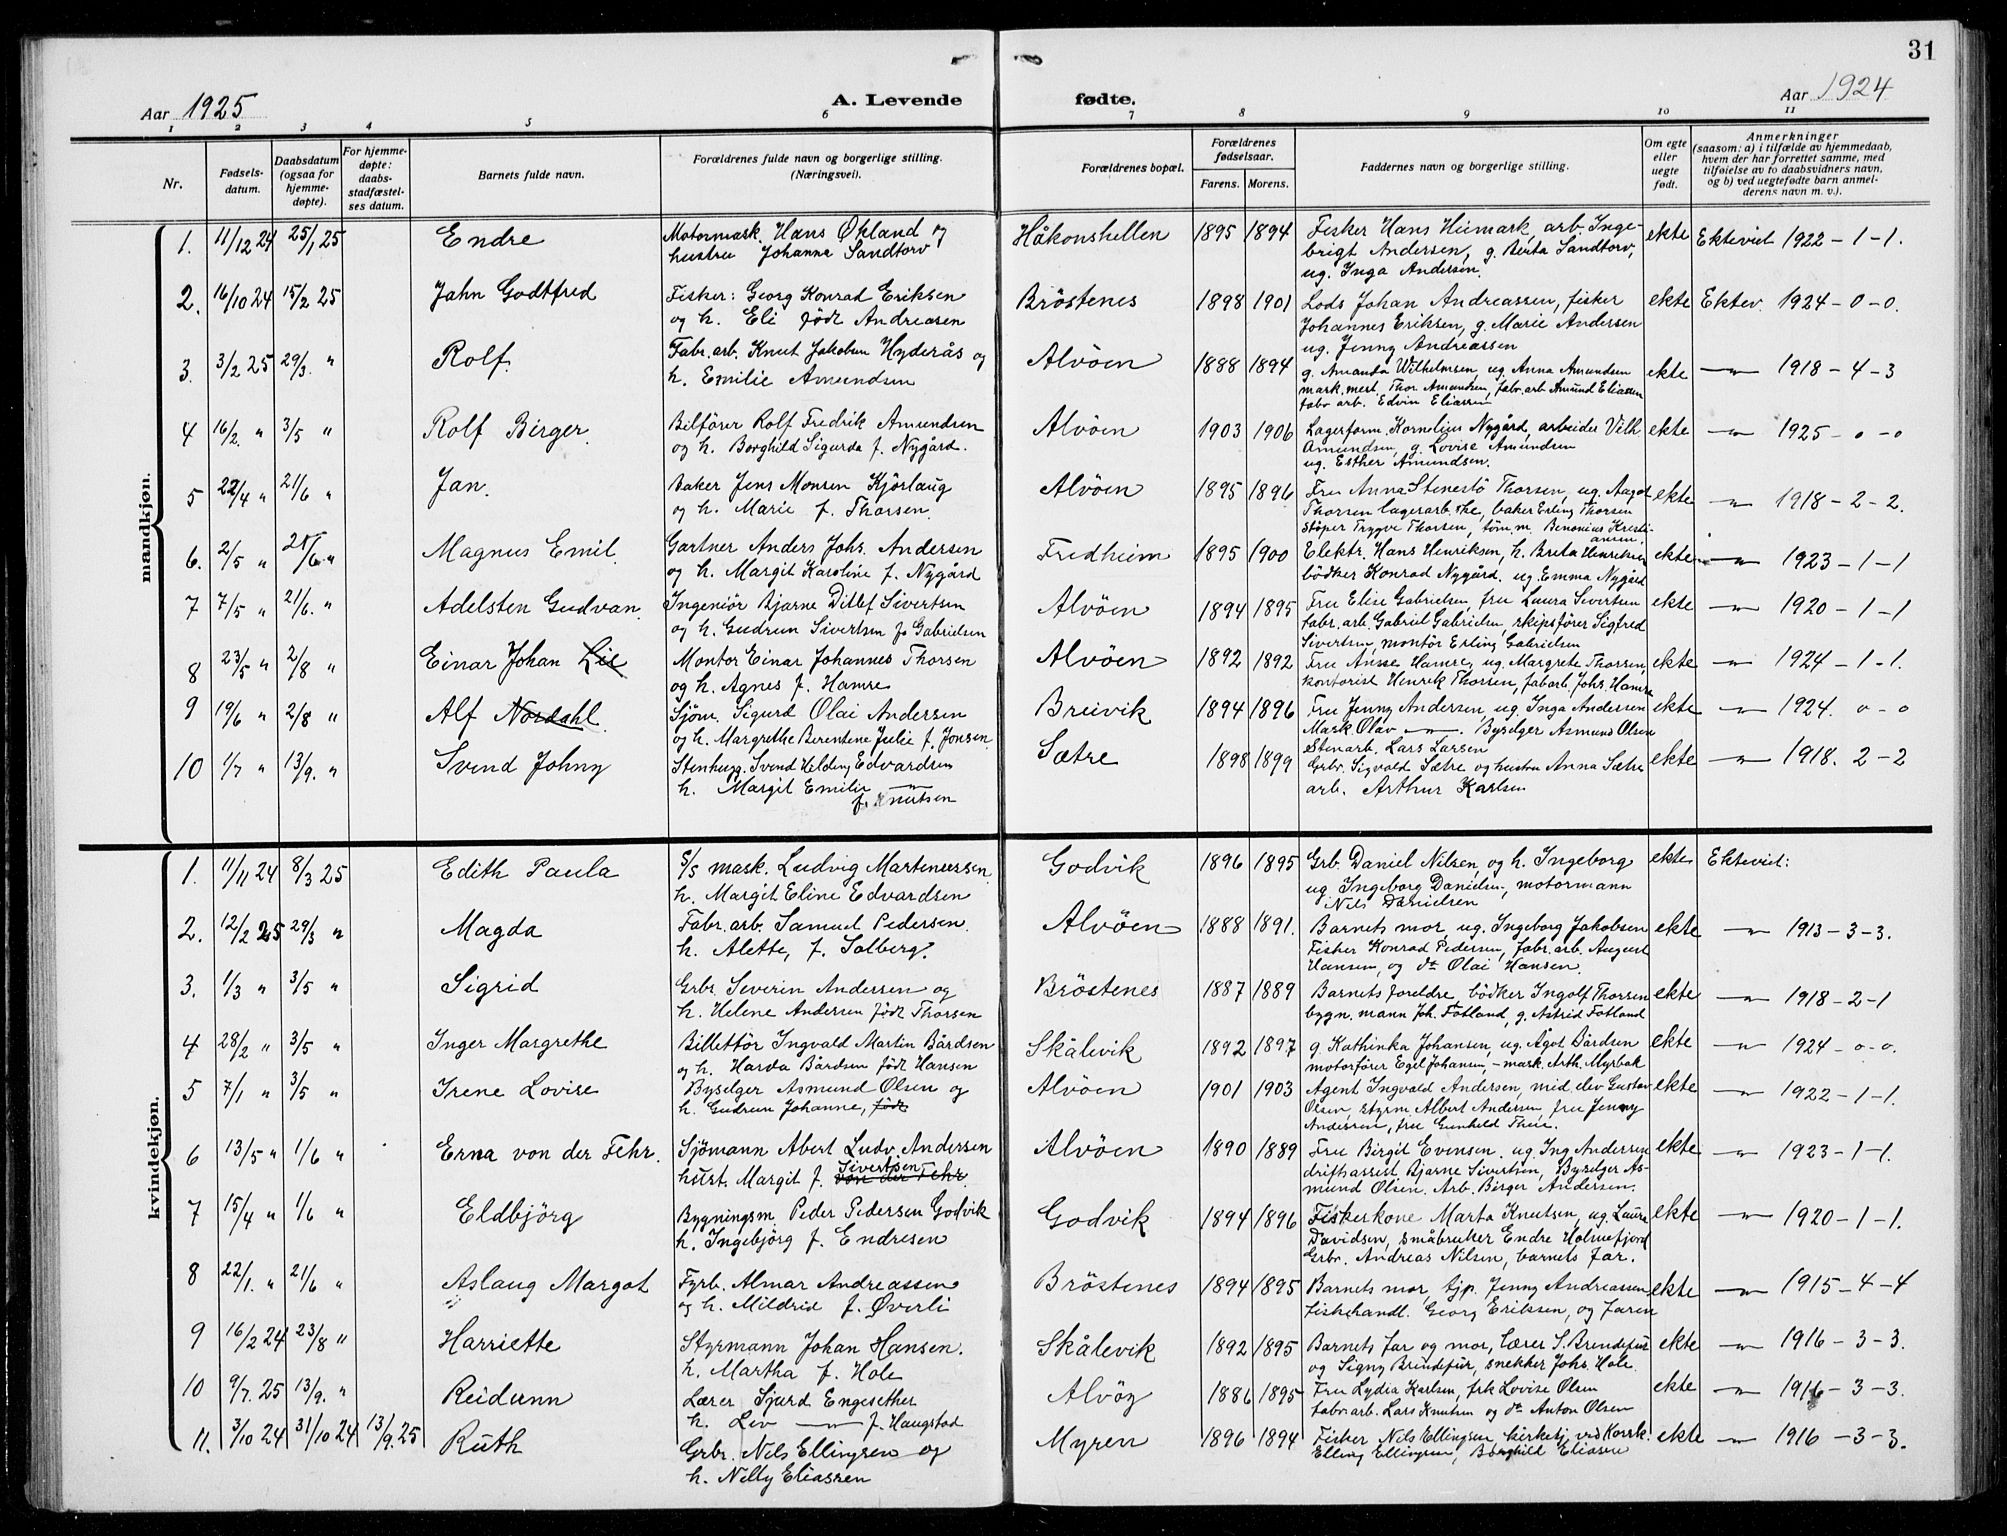 31
Aar 1925
A. Levende
fødte.
Aar 1924
1 2 3 4 5 6 7 8 9 10 11
Nr.
Fødsels-
datum.
Daabsdatum
(ogsaa for
hjemme-
døpte).
For hjemme-
døpte:
daabs-
stadfæstel-
ses datum.
Barnets fulde navn.
Forældrenes fulde navn og borgerlige stilling.
(Næringsvei).
Forældrenes bopæl.
Forældrenes
fødselsaar.
Farens. Morens.
Faddernes navn og borgerlige stilling.
Om egte
eller
uegte
født.
Anmerkninger
(saasom: a) i tilfælde av hjemmedaab,
hvem der har forrettet samme, med
tilføielse av to daabsvidners navn,
og b) ved uegtefødte barn anmel-
derens navn m. v.).
mandkjøn.
1. 11/12 24 25/1 25 Endre
Motormask. Hans Økland og
hustru Johanna Sandtorv
Håkonshellen 1895 1894
Fisker Hans Heimark, arb. Inge-
brigt Andersen, g. Berta Sandtorv,
ug. Inga Andersen.
ekte Ekteviet 1922 – 1 – 1.
2. 16/10 24 15/2 25 Jahn Godtfred
Fisker: Georg Konrad Eriksen
og h. Eli født Andreasen
Bröstenes 1898 1901
Lods Johan Andreassen, fisker
Johannes Eriksen, g. Marie Andersen
ug. Jenny Andreassen
ekte Ektev. 1924 – 0 – 0.
3. 3/2 25 29/3. " Rolf.
Fabr. arb. Knut Jakobsen Hyderås og
h. Emilie Amundsen
Alvöen 1888 1894
g. Amanda Wilhelmsen, ug. Anna Amundsen
mask. mest. Thor Amundsen, fabr. arb. Amund Eliassen
fabr. arb. Edvin Eliassen
ekte – " – 1918 – 4 – 3
4 16/2. " 3/5 " Rolf Birger.
Bilfører Rolf Fredrik Amundsen
og h. Borghild Sigurda f. Nygård.
Alvöen 1903 1906
Lagerform. Kornelius Nygård, arbeider Vilh
Amundsen, g. Lovise Amundsen
ug. Esther Amundsen.
ekte – " – 1925 – 0 – 0
5 22/4 " 21/6 " Jan.
Baker Jens Monsen Kjörlaug
og h. Marie f. Thorsen.
Alvöen 1895 1896
Fru Anna Stenestö Thorsen, ug. Aagot
Thorsen lagerarb.ske, baker Erling Thorsen
Støper Trygve Thorsen, töm.m. Benonius Kristi-
ansen.
ekte – " – 1918 – 2 – 2.
6. 2/5 " 21/6 " Magnus Emil.
Gartner Anders Johs. Andersen
og h. Margit Karoline f. Nygård
Fredheim 1895 1900
Elektr. Hans Henriksen, h. Breta Henriksen
bödker Konrad Nygård. ug. Emma Nygård
ekte – " – 1923 – 1 – 1
7 7/5 " 21/6. " Adelsten Gudvan.
Ingeniör Bjarne Ditlef Sivertsen
og h. Gudrun Sivertsen f. Gabrielsen
Alvöen 1894 1895
Fru Elise Gabrielsen, fru Laura Sivertsen
fabr. arb. Gabriel Gabrielsen, skipsfører Sigfred
Sivertsen, montör Erling Gabrielsen
ekte – " – 1920 – 1 – 1
8 23/5 " 2/8 " Einar Johan Lie
Montör Einar Johannes Thorsen
og h. Agnes f. Hamre
Alvöen 1892 1892
Fru Hamre, ug. Margrete Thorsen,
kontorist Henrik Thorsen, fab.arb. Johs. Hamre
ekte – " – 1924 – 1 – 1.
9 19/6 " 2/8 " Alf Nordahl.
Sjöm. Sigurd Olai Andersen
og h. Margrethe Berentine Julie f. Jonsen.
Breivik 1894 1896
Fru Jenny Andersen, ug. Inga Andersen
Mask Olav – " –. Byselger Asmund Olsen
ekte – " – 1924. 0 – 0
10 1/7 " 13/9. " Svend Johny
Stenhugg. Svend Helding Edvardsen
h. Margit Emilie – " –
f. Knutsen
Sætre 1898 1899
Stenarb. Lars Larsen
Grbr. Sigvald Sætre og hustru Anna Sætre
arb. Arthur Karlsen
ekte – " – 1918. 2 – 2
kvindekjøn.
1. 11/11 24 8/3 25 Edith Paula
S/S mask. Ludvig Martenussen.
h. Margit Eline Edvardsen
Godvik 1896 1895
Grb. Daniel Nilsen, og h. Ingeborg
ug Ingeborg Danielsen, motormann
Nils Danielsen
ekte Ekteviet:
2. 12/2 25 29/3 " Magda
Fabr. arb. Samuel Pedersen.
h. Alette, f. Solberg.
Alvöen 1888 1891.
Barnets mor, ug. Ingeborg Jakobsen
Fisker Konrad Pedersen, fabr. arb. August
Hansen, og do Olai Hansen.
ekte – " – 1913 – 3 – 3.
3. 1/3 " 3/5 " Sigrid
Grbr Severin Andersen og
h. Helene Andersen født Thorsen
Bröstenes 1887 1889
Barnets foreldre, bödker Ingolf Thorsen
bygn. mann Joh. Fotland, g. Astrid Fotland
ekte – " – 1918 – 2 – 1
4 28/2 " 3/5 " Inger Margrethe
Billettör Ingvald Martin Bårdsen
og h. Harda Bårdsen født Hansen
Skålevik 1892 1897
g. Kathinka Johansen, ug. Ågot Bårdsen
motorfører Egil Johansen, – mask. Arth. Myrbak
ekte – " – 1924 – 0 – 0.
5 7/1 " 3/5 " Irene Lovise
Byselger Asmund Olsen og
h. Gudrun Johanne, født
Alvöen 1901 1903
Agent Ingvald Andersen, mid. elev Gustav
Olsen, styrm. Albert Andersen, fru Jenny
Andersen, fru Gunhild Theie.
ekte – " – 1922 – 1 – 1.
6 13/5 " 1/6 " Erna von der Fehr.
Sjömann Abert Ludv. Andersen
hust. Margit f. Sivertsen
von der Fehr.
Alvöen 1890 1889
Fru Birgit Evensen. ug. Ing Andersen
driftsassist Bjarne Sivertsen, Byselger As-
mund Olsen. Arb. Birger Andersen.
ekte – " – 1923 – 1 – 1.
7 15/4 " 1/6 " Eldbjörg
Bygningsm. Peder Pedersen Godvik
h. Ingebjörg f. Endresen
Godvik 1894 1896
Fiskerkone Marta Knutsen, ug. Laura
Davidsen, småbruker Endre Holmefjord
Grbr. Andreas Nilsen, barnets far.
ekte – " – 1920 – 1 – 1.
8 22/1. " 21/6 " Aslaug Margot
Fyrb. Almar Andreassen
og h. Mildrid f. Øverli
Bröstenes 1894 1895
Barnets mor, tjp. Jenny Andreassen
fiskehandl. Georg Eriksen, og faren
ekte – " – 1915 – 4 – 4
9 16/2 24 23/8 " Harriette
Styrmann Johan Hansen.
h. Martha f. Hole
Skålevik 1892 1895
Barnets far og mor, Lærer S. Brendefür
og Signy Brendefür, snekker Johs. Hole.
ekte – " – 1916 – 3 – 3.
10 9/7. 25 13/9. " Reidunn
Lærer Sjurd Engesether
h. Liv – " – f. Haugstad
Alvöy 1886 1895
Fru Lydia Karlsen, frk Lovise Olsen
fabr. arb. Lars Knutsen og do Anton Olsen
ekte – " – 1916 – 3 – 3.
11. 3/10 24 31/10 24 13/9. 25 Ruth
Grbr. Nils Ellingsen og
h. Nelly Eliassen
Myren 1896 1894
Fisker Nils Ellingsen, kirketj. ved Korsk.
Elling Ellingsen, Borghild Eliasen
ekte – " – 1916 – 3 – 3.